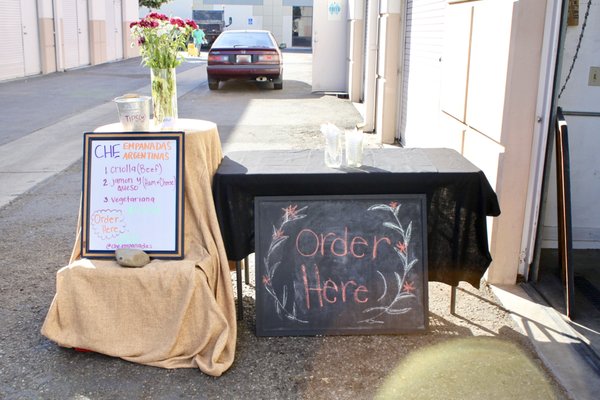 TIPS
CHE EMPANADAS
ARGENTINAS
1 criolla (Beef)
2 jamon y (Ham & Cheese)
queso
3 vegetariana
Order
Here
@che.empanadas
Order
Here